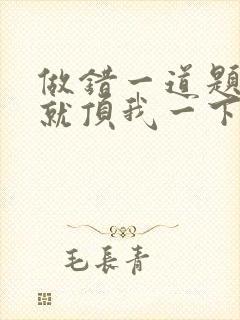 做錯一道題
就頂我一下
毛長青